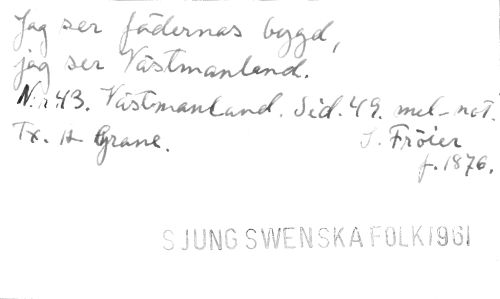 Jag ser fädernas bygd,
jag ser Västmanland.
N:r 43. Västmanland. Sid. 49. mel-not.
Tx. H Grane.
J. Fröier
f. 1876.
SJUNG SWENSKA FOLK 1961